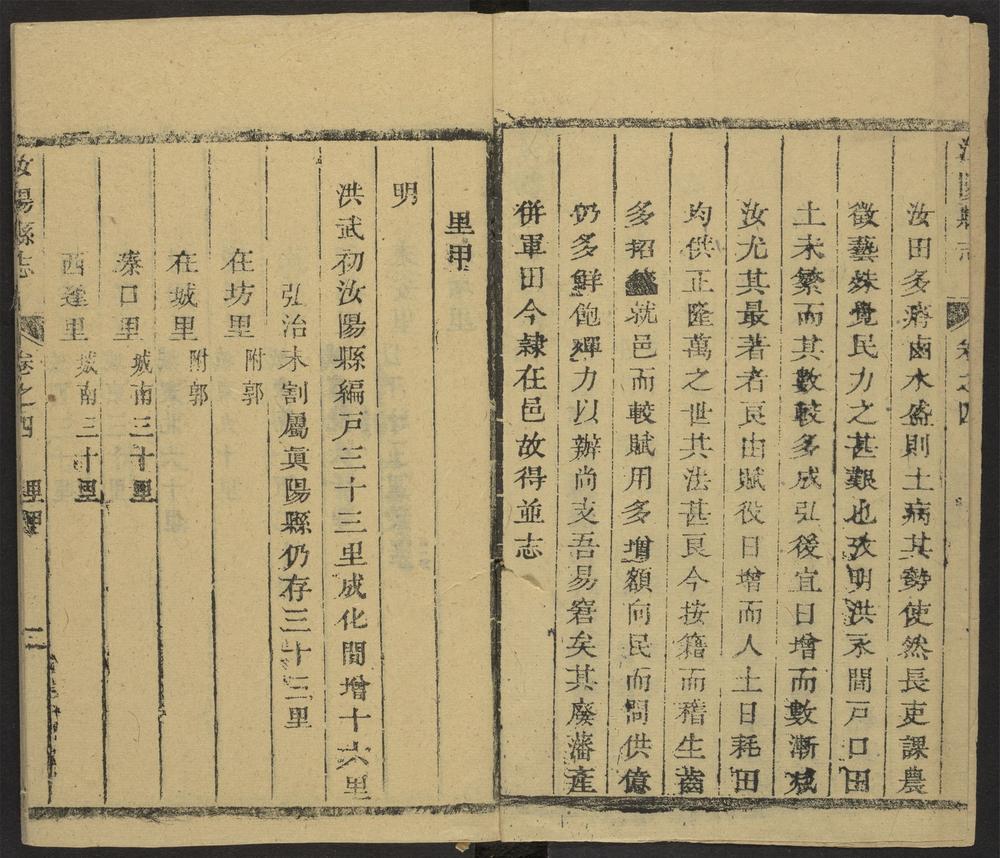 汝陽縣志 卷之四
汝田多瀉鹵水盛則土病其勢使然長吏課農
徵藝殊覺民力之甚艱也攷明洪永間戸口田
土未繁而其數較多成弘後宜日增而數漸减
汝尤其最著者良由賦役日增而人土日耗田
均供正隆萬之世其法甚良今按籍而稽生齒
多招就邑而較賦用多增額向民而問供億
仍多鮮飽殫力以辦尚支吾易窘矣其廢藩產
併軍田今隷在邑故得並志
里甲
明
洪武初汝陽縣編戸三十三里成化間增十六里
弘治末割屬眞陽縣仍存三十三里
在坊里 附郭
在城里 附郭
溱口里 城南三十里
西逢里 城南三十里
汝陽縣志 卷之四 里甲 三